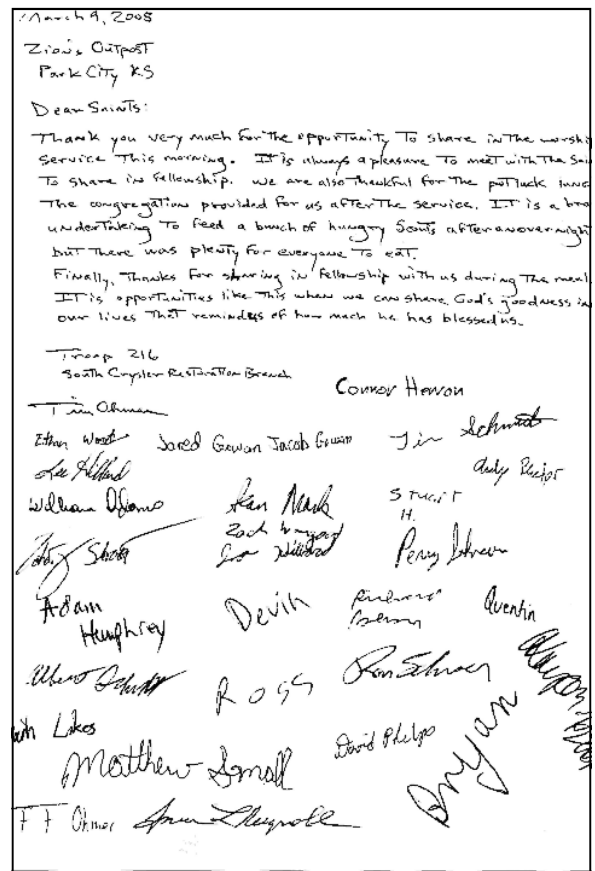 March 9, 2005
Zion's Outpost
Park City KS
Dear Saints:
Thank you very much for the opportunity to share in the worship
service this morning. It is always a pleasure to meet with the Sai
to share in fellowship. We are also thankful for the potluck lunc
the congregation provided for us after the service. It is a bra
undertaking to feed a bunch of hungry Scouts after an overnight
but there was plenty for everyone to eat.
Finally, thanks for sharing in fellowship with us during the meal.
It is opportunities like this when we can share God's goodness in
our lives that reminds us of how much he has blessed us.
Troop 216
South Crysler Restoration Branch
Connor Hewon
Tim Ohman
Ethan Wood Jared Gowan Jacob Gowan Jim Schmidt
Lee Hilliard Andy Rector
William Adams Sean Mack Stuart
H.
Zach
Hilliard Perry Johnson
Adam
Humphrey Devin Quentin
Albert Schmidt Ross Ron
Likes
Matthew Small David Phelps Bryan